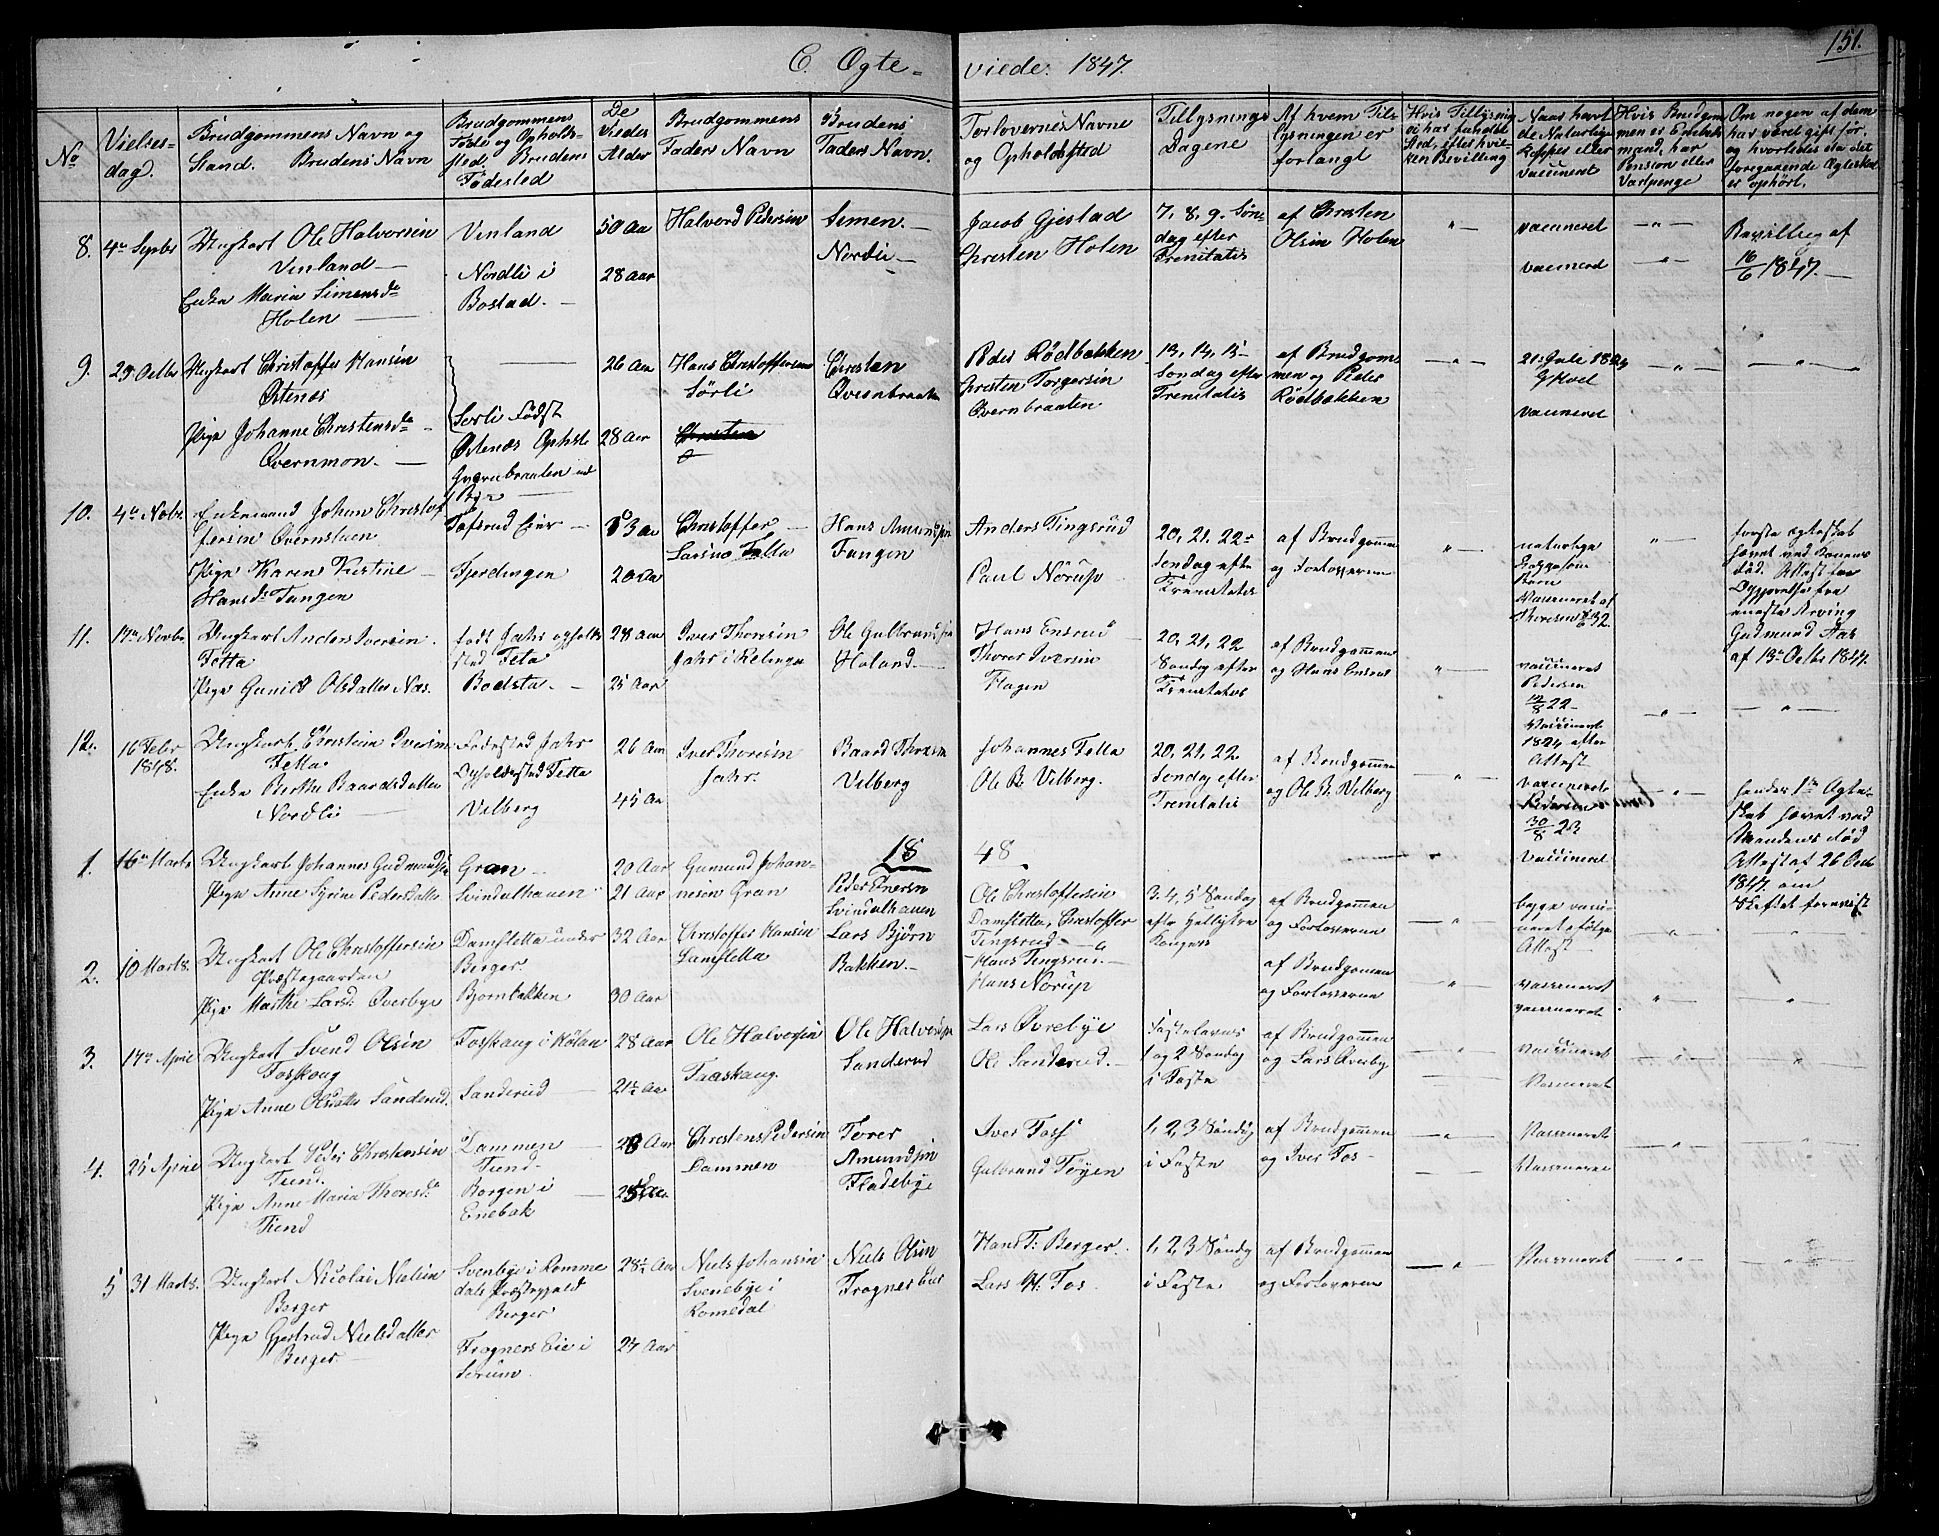 151.
C. Ægte-viede. 1847.
No
Vielses-
dag.
Brudgommens Navn og
Stand. Brudens Navn
Brudgommens
Føde og Opholds-
sted. Brudens
Fødested
De
Viedes
Alder
Brudgommens
Faders Navn
Brudens
Faders Navn.
Forlovernes Navne
og Opholdssted
Tillysnings
Dagene
Af hvem Til-
lysningen er
forlangt
Hvis Tillysning
ei har fundet
Sted, efter hvil-
ken Bevilling
Naar havt
de Naturlige
Kopper eller
vaccineret
Hvis Brudgom-
men er
mand, har
Pension eller
Vartpenge
Om nogen af dem
har været gift før,
og hvorledes da det
foregaaende Ægteskab
er ophört.
8. 4de Septbr
Ungkarl Ole Halvorsen
Vinland
Enke Maria Simensdr
Holen
Vinland
Nordli i
Bostad.
50 Aar
28 Aar
Halvord Pedersen
Simen
Nordli
Jacob Gjestad
Christen Holen
7, 8, 9. Søn-
dag efter
Trinitatis
af Christen
Olsen Holen
vaccineret
vaccinered
Bevilling af
16/6 1847.
9. 29 Octbr
Ungkarl Christoffer Hansen
Østenæs
Pige Johanne Christensdr
Qvernmon.
Sørli Født
Østenæs Ophst
26 Aar
28 Aar
Hans Christoffersen
Sørli
Christen
Qvernbraaten
Peder Rødbakken
Christen Torgersen
Qvernbraaten
13, 14, 15
Søndag efter
Trinitatis
af Brudgom-
men og Peder
Rødbakken
vaccineret
10. 4de Novbr
Enkemand Johan Christof-
fersen Qvernstuen
Pige Karen Kirstine
Hansdr Tangen
Tofsrud Eier
Fjerdingen
20 Aar
Christoffer
Larsen Fetta
Hans Amundsen
Tangen
Anders Tingsrud
Paul Nörup
20, 21, 22
Søndag efter
Trinitatis
af Brudgommen
og Forloverne
naturlige
Børn
Vaccineret af
Thoresen
første Ægteskab
hævet ved Konens
Død. Attest
eneste Arving
Gudmund Aas
af 13 Octbr 1847.
11. 17de Novbr
Ungkarl Anders Iversen
Fetta
Pige Gunild Olsdatter Næs.
født Jahr opholds
sted Feta
Bodsta
28 Aar
25 Aar
Iver Thoresen
Jahr i Relingen
Ole Gulbrandsen
Holand
Hans Ensrud
Thorer Iversen
Hagen
20, 21, 22
Søndag efter
Trinitatis
af Brudgommen
og Hans Ensrud
vaccineret
Pedersen
12/8 22
12. 16 Febr
1848.
Ungkarl Christian Iversen
Fetta
Enke Berthe Baardsdatter
Nordli
Fødested Jahr
Opholdssted Fetta
Vilberg
26 Aar
45 Aar
Iver Thoresen
Jahr.
Baard Thoresen
Vilberg
Johannes Fetta
Ole B. Vilberg.
20, 21, 22
Søndag efter
Trinitatis
af Brudgommen
og Ole B. Vilberg
Vaccineret
1824 efter
Attest
vaccineret
Pedersen
30/8 23
hendes 1ste Ægte-
skab hævet ved
Mandens død
Attest af 26 Octbr
1847 om
Skiftet forevist
1848
1. 16de Marts
Ungkarl Johannes Gudmundsen
Pige Anne Syrine Pedersdatter
Gran
Svindalhauen
20 Aar
21 Aar
Gumund Johan-
nesen Gran
Peder Enersen
Svindalhauen
Ole Christoffersen
Damstetta, Christoffer
Tingsrud
3. 4, 5 Søndag
efter Hellig tre
Konger
af Brudgommen
og Forloverne
Vaccineret
begge vacci-
neret efølge
Attest
2. 10 Marts.
Ungkarl Ole Christoffersen
Præstegaarden
Pige Marthe Larsd: Øverbye
Damstetta under
Berger.
Bjørnbakken
32 Aar
30 Aar
Christoffer Hansen
Damstetta
Lars Bjørn
Bakken.
Hans Tingsrud.
Hans Nörup
af Brudgommen
og Forloverne
vaccineret
vaccineret.
3. 14de April
Ungkarl Svend Olsen
Fosskaug
Pige Anne Olsdatter Sanderud.
Fosskaug i Høland
Sanderud
28 Aar
21 1/2 Aar
Ole Halvorsen
Faaskaug.
Ole Halvorsen
Sanderud
Lars Øvrebye
Ole Sanderud.
Fastelavns
1 og 2 Søndag
i Faste
af Brudgommen
og Lars Øverby
Vaccineret
Vaccineret
4. 25 April
Ungkarl Peder Christensen
Tiend.
Pige Anne Maria Thoresdr
Tiend
Dammen
Tiend
Borgen i
Enebak
Christen Pedersen
Dammen
Torer
Amundsen
Fladebye
Iver Foss
Gulbrand Töyen
1, 2, 3 Søndag
i Faste
af Brudgommen
og Iver Fos
Vaccineret
Vaccineret
5 31 Marts.
Ungkarl Nicolai Nielsen
Berger
Pige Gjertrud Nielsdatter
Berger
Svenebye i Romme
dals Præstegjeld
Berger
Frogners Eie i
Sörum
28 1/2 Aar
24 Aar
Niels Johansen
Svenebye i
Romedal
Niels Olsen
Frogner Eier
Hans T: Berger.
Lars H. Fos.
1, 2, 3 Søndag
i Faste
af Brudgommen
og Forloverne
Vaccineret